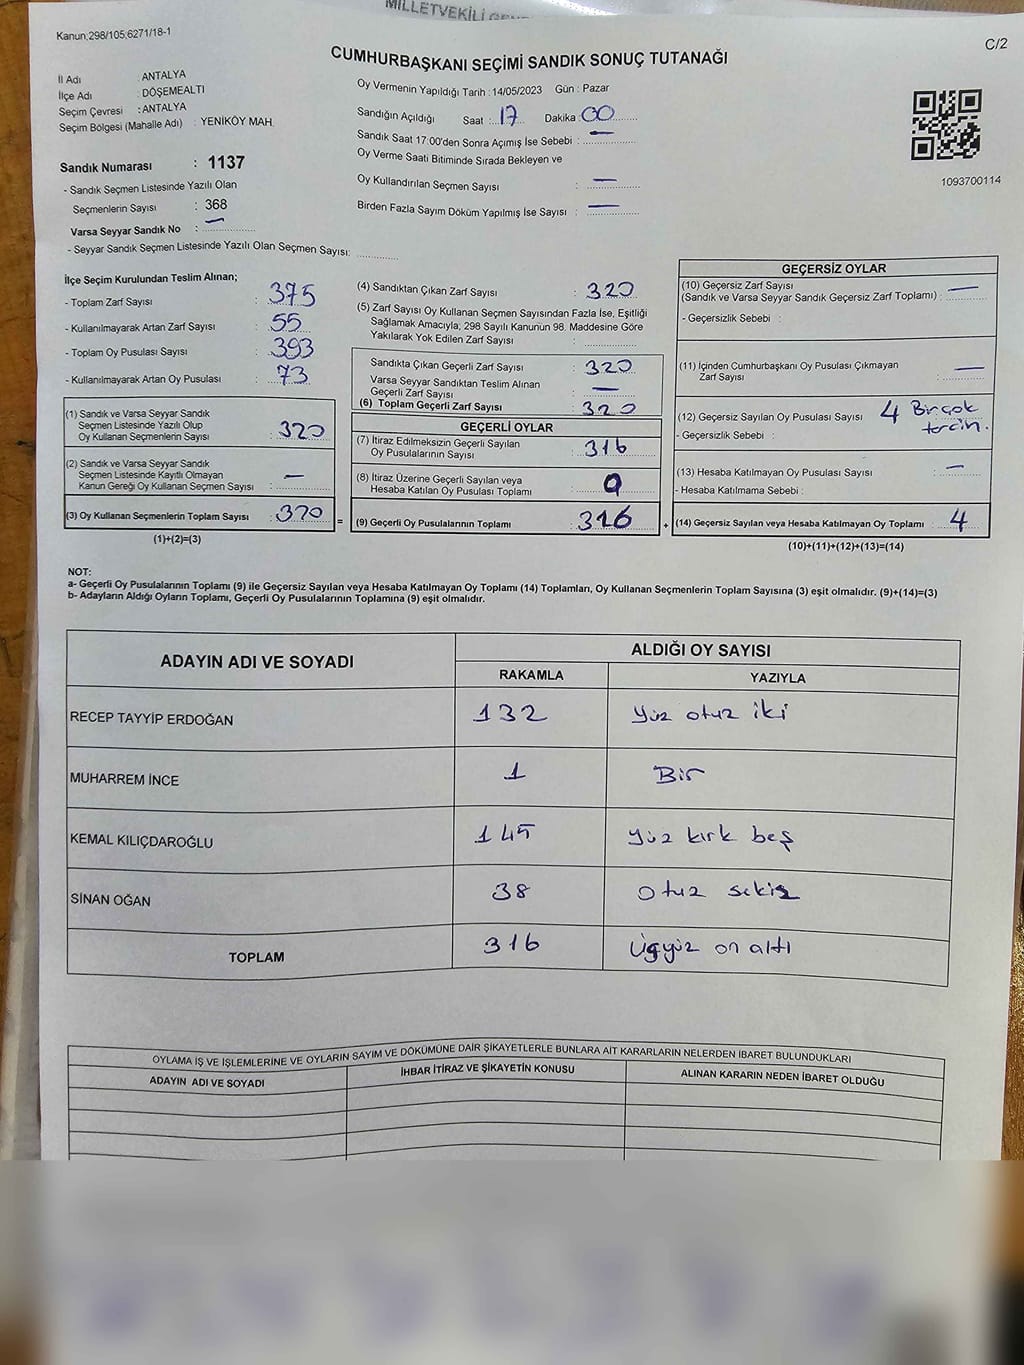 MİLLETVEKİLİ
Kanun:298/105;6271/18-1
C/2
CUMHURBAŞKANI SEÇİMİ SANDIK SONUÇ TUTANAĞI
İl Adı : ANTALYA
İlçe Adı : DÖŞEMEALTI
Seçim Çevresi : ANTALYA
Seçim Bölgesi (Mahalle Adı) : YENİKÖY MAH.
Sandık Numarası : 1137
- Sandık Seçmen Listesinde Yazılı Olan
Seçmenlerin Sayısı : 368
Varsa Seyyar Sandık No : —
- Seyyar Sandık Seçmen Listesinde Yazılı Olan Seçmen Sayısı:
Oy Vermenin Yapıldığı Tarih : 14/05/2023 Gün : Pazar
Sandığın Açıldığı Saat : 17 Dakika : 00
Sandık Saat 17:00'den Sonra Açımış İse Sebebi : —
Oy Verme Saati Bitiminde Sırada Bekleyen ve
Oy Kullandırılan Seçmen Sayısı : —
Birden Fazla Sayım Döküm Yapılmış İse Sayısı : —
1093700114
İlçe Seçim Kurulundan Teslim Alınan;
- Toplam Zarf Sayısı : 375
- Kullanılmayarak Artan Zarf Sayısı : 55
- Toplam Oy Pusulası Sayısı : 393
- Kullanılmayarak Artan Oy Pusulası : 73
(1) Sandık ve Varsa Seyyar Sandık
Seçmen Listesinde Yazılı Olup
Oy Kullanan Seçmenlerin Sayısı : 320
(2) Sandık ve Varsa Seyyar Sandık
Seçmen Listesinde Kayıtlı Olmayan
Kanun Gereği Oy Kullanan Seçmen Sayısı : —
(3) Oy Kullanan Seçmenlerin Toplam Sayısı : 320 =
(1)+(2)=(3)
(4) Sandıktan Çıkan Zarf Sayısı : 320
(5) Zarf Sayısı Oy Kullanan Seçmen Sayısından Fazla İse, Eşitliği
Sağlamak Amacıyla; 298 Sayılı Kanunun 98. Maddesine Göre
Yakılarak Yok Edilen Zarf Sayısı :
Sandıkta Çıkan Geçerli Zarf Sayısı : 320
Varsa Seyyar Sandıktan Teslim Alınan
Geçerli Zarf Sayısı : —
(6) Toplam Geçerli Zarf Sayısı : 320
GEÇERLİ OYLAR
(7) İtiraz Edilmeksizin Geçerli Sayılan
Oy Pusulalarının Sayısı : 316
(8) İtiraz Üzerine Geçerli Sayılan veya
Hesaba Katılan Oy Pusulası Toplamı : 0
(9) Geçerli Oy Pusulalarının Toplamı : 316 +
GEÇERSİZ OYLAR
(10) Geçersiz Zarf Sayısı —
(Sandık ve Varsa Seyyar Sandık Geçersiz Zarf Toplamı) :
- Geçersizlik Sebebi :
(11) İçinden Cumhurbaşkanı Oy Pusulası Çıkmayan
Zarf Sayısı : —
(12) Geçersiz Sayılan Oy Pusulası Sayısı 4 Birçok
- Geçersizlik Sebebi : tercih.
(13) Hesaba Katılmayan Oy Pusulası Sayısı : —
- Hesaba Katılmama Sebebi :
(14) Geçersiz Sayılan veya Hesaba Katılmayan Oy Toplamı : 4
(10)+(11)+(12)+(13)=(14)
NOT:
a- Geçerli Oy Pusulalarının Toplamı (9) ile Geçersiz Sayılan veya Hesaba Katılmayan Oy Toplamı (14) Toplamları, Oy Kullanan Seçmenlerin Toplam Sayısına (3) eşit olmalıdır. (9)+(14)=(3)
b- Adayların Aldığı Oyların Toplamı, Geçerli Oy Pusulalarının Toplamına (9) eşit olmalıdır.
ADAYIN ADI VE SOYADI ALDIĞI OY SAYISI
RAKAMLA YAZIYLA
RECEP TAYYİP ERDOĞAN 132 Yüz otuz iki
MUHARREM İNCE 1 Bir
KEMAL KILIÇDAROĞLU 145 Yüz kırk beş
SİNAN OĞAN 38 Otuz sekiz
TOPLAM 316 Üçyüz on altı
OYLAMA İŞ VE İŞLEMLERİNE VE OYLARIN SAYIM VE DÖKÜMÜNE DAİR ŞİKAYETLERLE BUNLARA AİT KARARLARIN NELERDEN İBARET BULUNDUKLARI
ADAYIN ADI VE SOYADI İHBAR İTİRAZ VE ŞİKAYETİN KONUSU ALINAN KARARIN NEDEN İBARET OLDUĞU